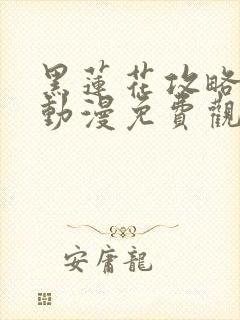 黑蓮花攻略
動漫免費觀
安庸龍